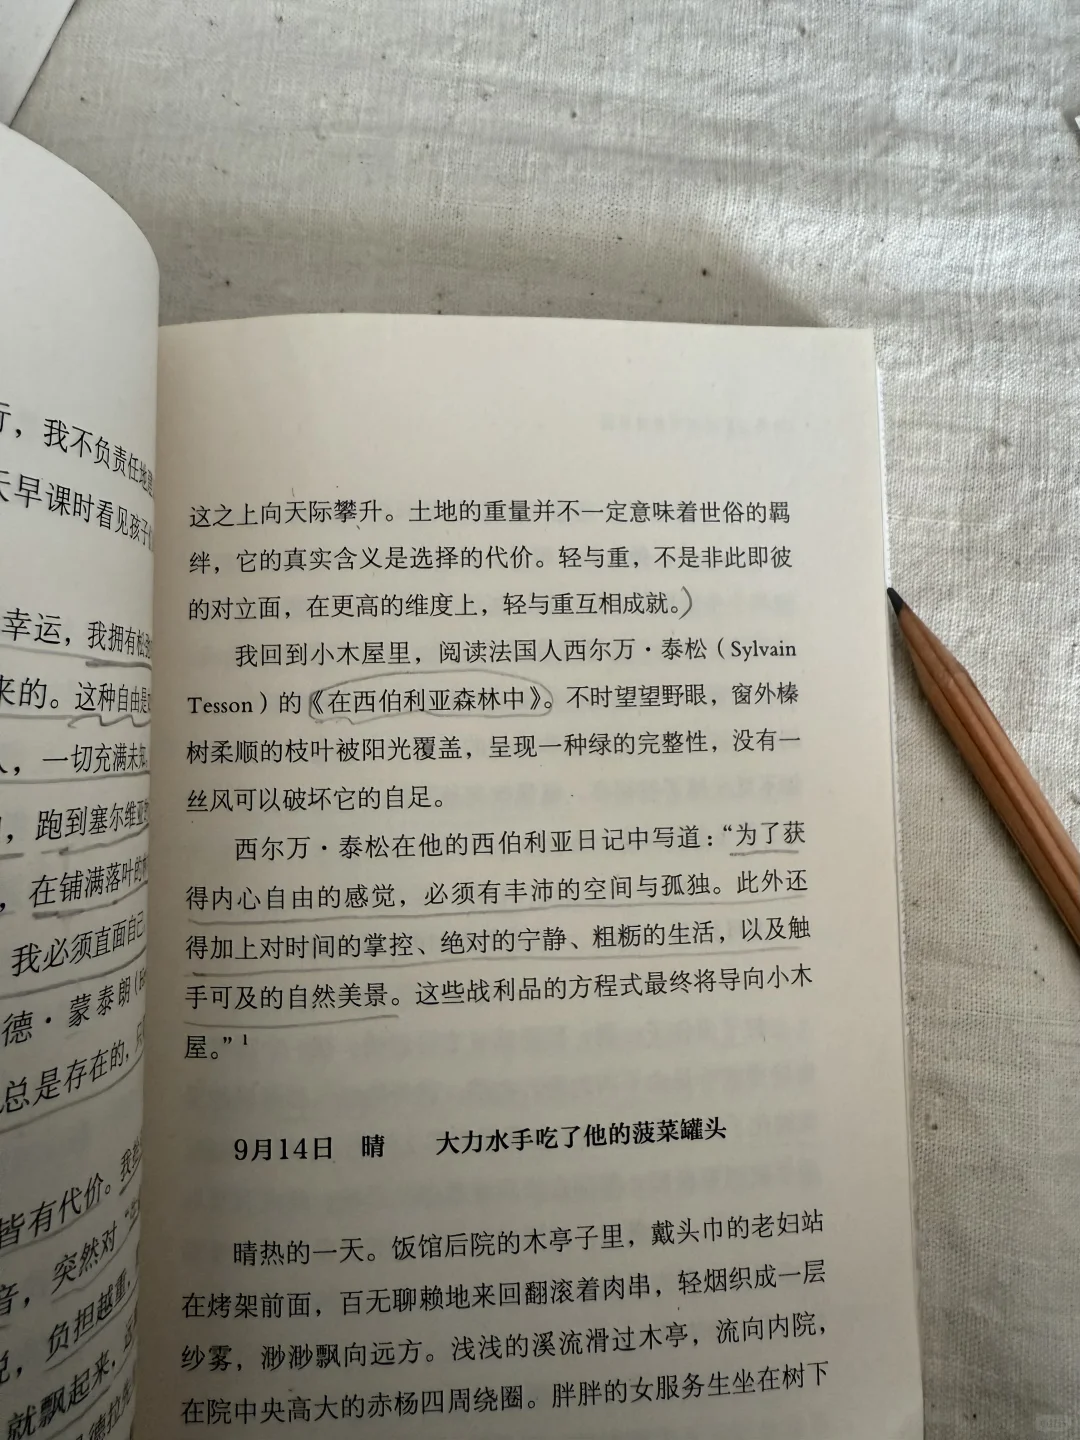 行，我不负责任地
天早课时看见孩子
幸运，我拥有松弛
来的。这种自由是
，一切充满未知
，跑到塞尔维亚
，在铺满落叶的
我必须直面自己
德·蒙泰朗
总是存在的，只
皆有代价。我
音，突然对
说，负担越重，
就飘起来，远
这之上向天际攀升。土地的重量并不一定意味着世俗的羁
绊，它的真实含义是选择的代价。轻与重，不是非此即彼
的对立面，在更高的维度上，轻与重互相成就。）
我回到小木屋里，阅读法国人西尔万·泰松（Sylvain
Tesson）的《在西伯利亚森林中》。不时望望野眼，窗外榛
树柔顺的枝叶被阳光覆盖，呈现一种绿的完整性，没有一
丝风可以破坏它的自足。
西尔万·泰松在他的西伯利亚日记中写道：“为了获
得内心自由的感觉，必须有丰沛的空间与孤独。此外还
得加上对时间的掌控、绝对的宁静、粗粝的生活，以及触
手可及的自然美景。这些战利品的方程式最终将导向小木
屋。”1
9月14日 晴 大力水手吃了他的菠菜罐头
晴热的一天。饭馆后院的木亭子里，戴头巾的老妇站
在烤架前面，百无聊赖地来回翻滚着肉串，轻烟织成一层
纱雾，渺渺飘向远方。浅浅的溪流滑过木亭，流向内院，
在院中央高大的赤杨四周绕圈。胖胖的女服务生坐在树下